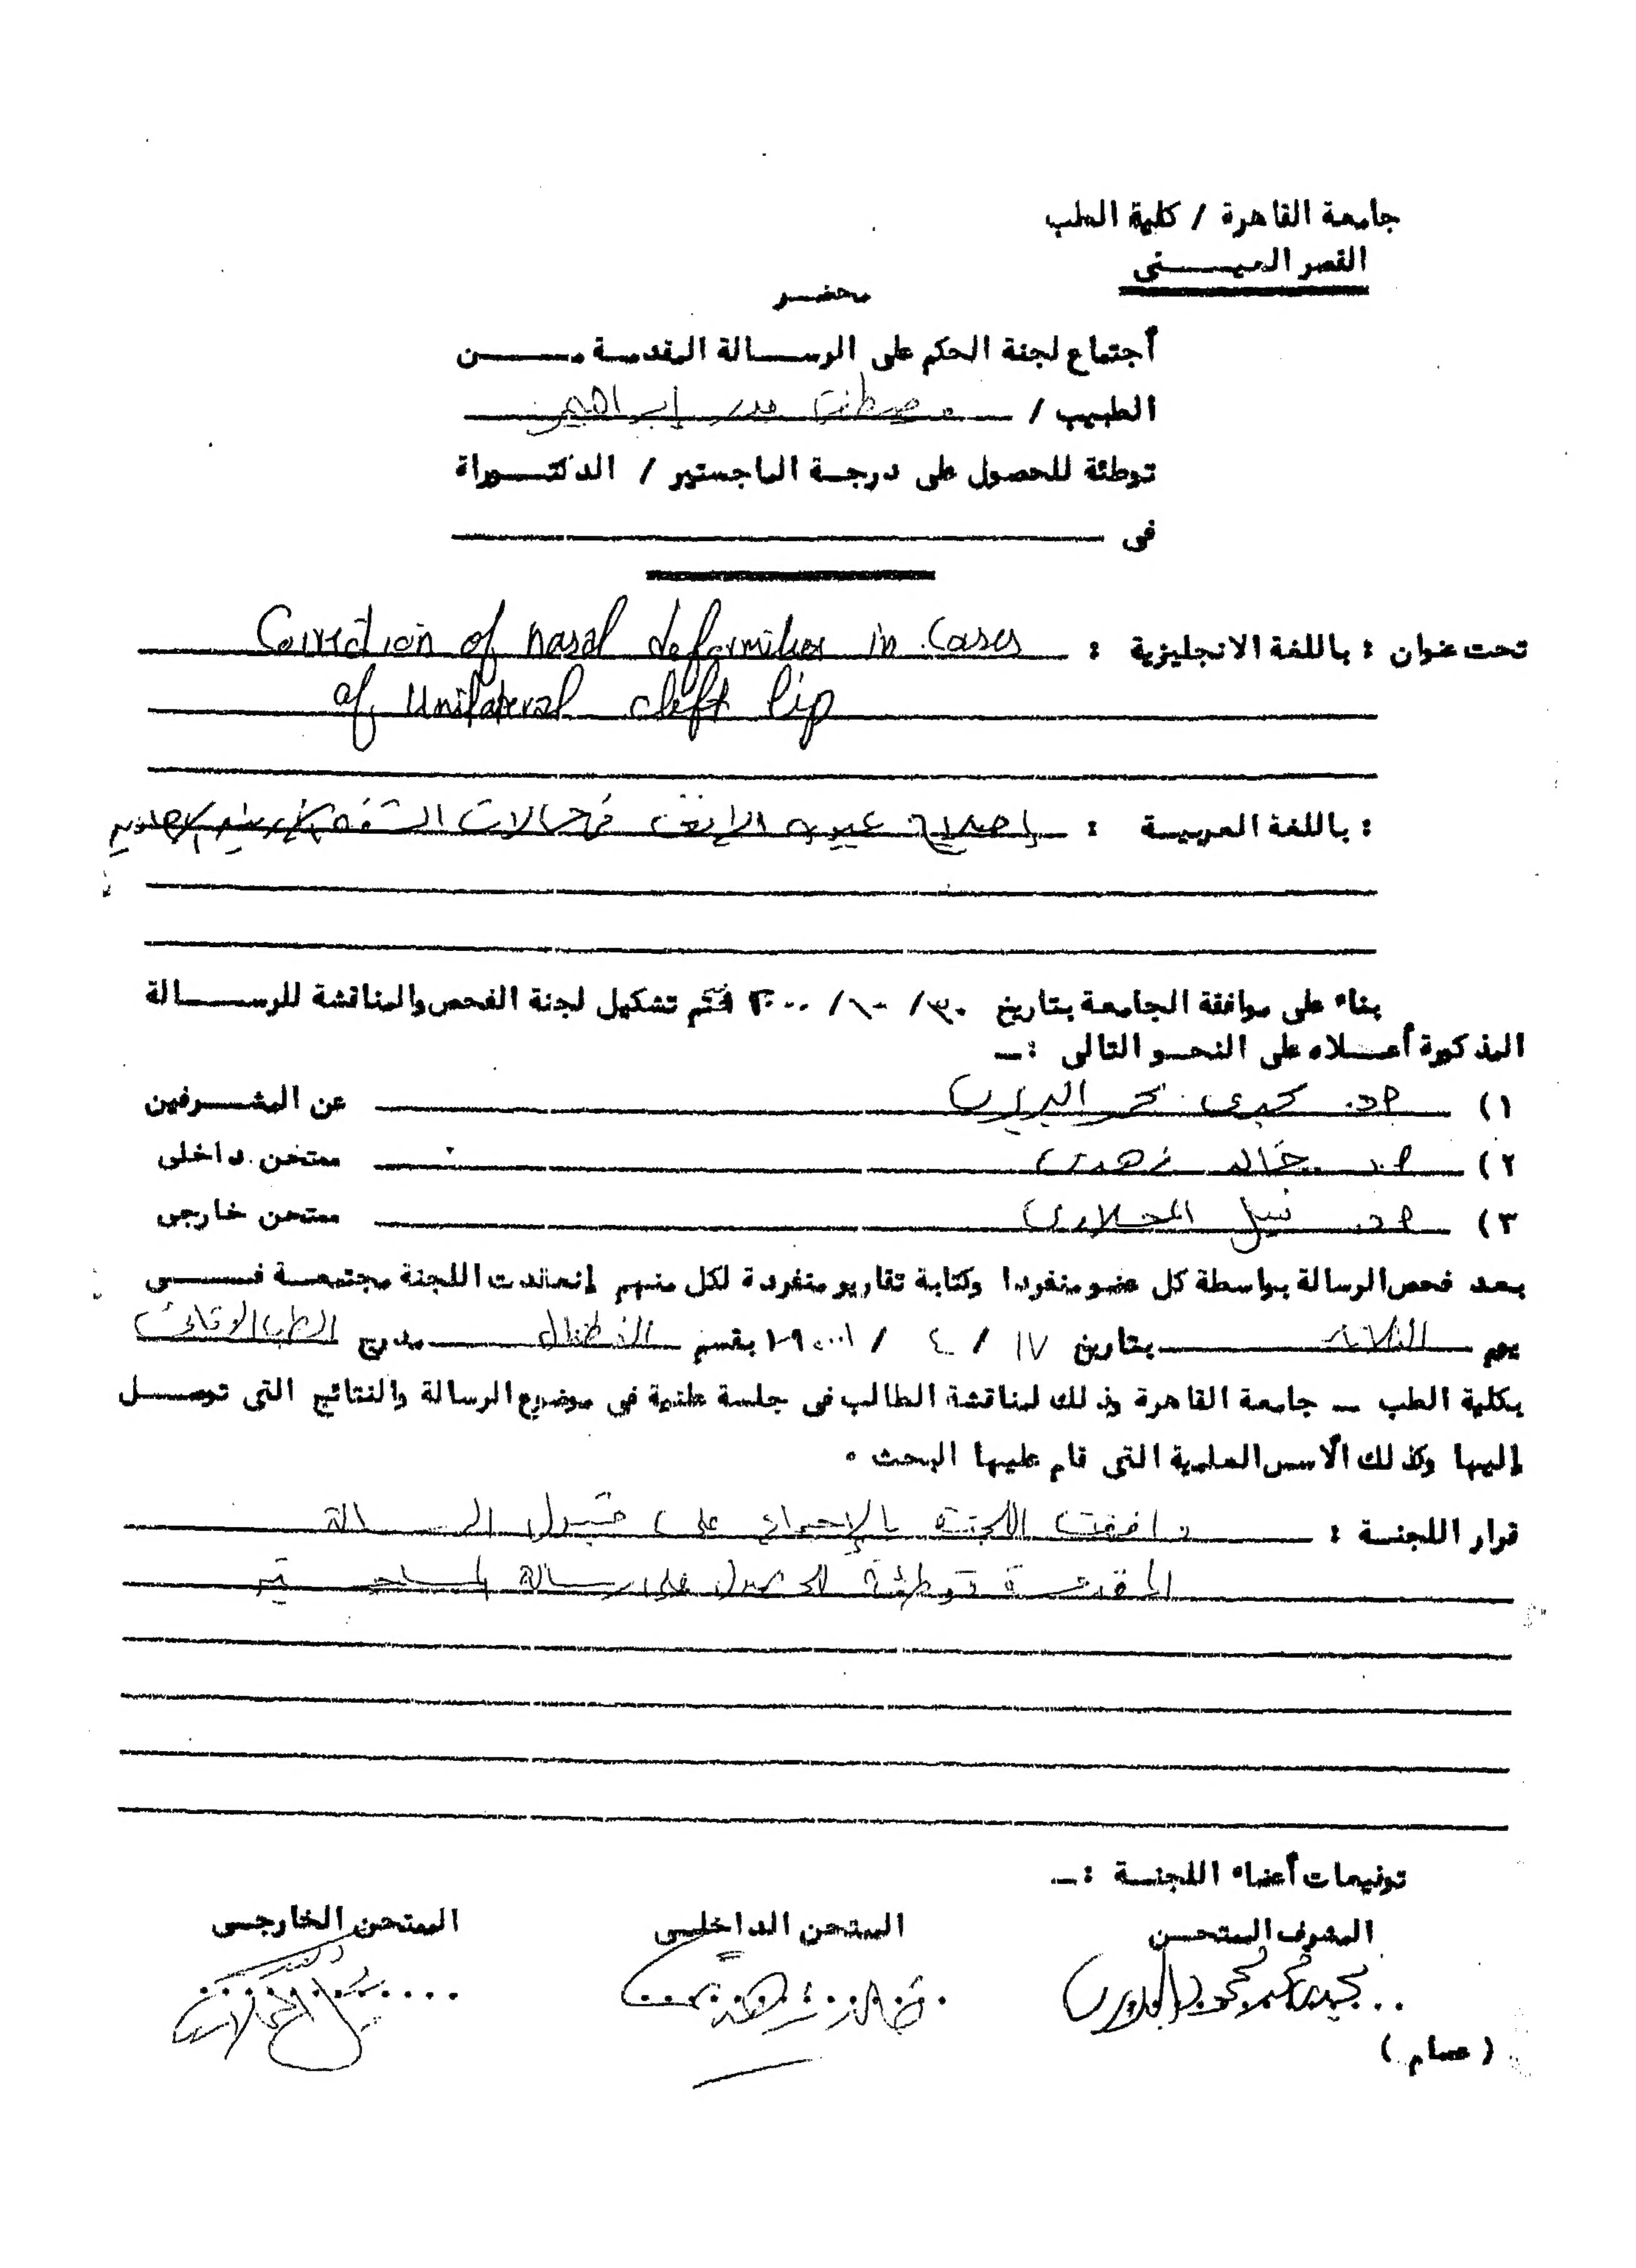 جامعة القاهرة / كلية الطب
القصر العيــــنى
محضـر
أجتماع لجنة الحكم على الرســالة المقدمـة مـــن
الطبيب / إبراهيم
توطئة للحصول على درجـة الماجستير / الدكتــوراة
فى
تحت عنوان : باللغة الانجليزية : Correction of nasal deformities in cases
of unilateral cleft lip
: باللغة العربيـة : إصلاح عيوب الأنف فى حالات
بناء على موافقة الجامعة بتاريخ ٣٠ / ١٠ / ٢٠٠٠ تم تشكيل لجنة الفحص والمناقشة للرســالة
المذكورة أعــلاه على النحـو التالى :ـ
١) أ.د. عن المشــرفين
٢) أ.د. خالد زهدى ممتحن داخلى
٣) أ.د. نبيل المحلاوى ممتحن خارجى
بعـد فحص الرسالة بواسطة كل عضو منفردا وكتابة تقارير منفردة لكل منهم إنعقدت اللجنة مجتمعـة فـــى
يوم الثلاثاء بتاريخ ١٧ / ٤ / بقسم مدرج
بكلية الطب ـ جامعة القاهرة وذلك لمناقشة الطالب فى جلسة علنية فى موضوع الرسالة والنتائج التى توصــل
إليها وكذلك الأسس العلمية التى قام عليها البحث ٠
قرار اللجنـة : وافقت اللجنة بالإجماع على قبول الرسالة
المقدمة توطئة للحصول على رسالة الماجستير
توقيعات أعضاء اللجنـة :ـ
المشرف الممتحــن الممتحن الداخلـى الممتحن الخارجـى
( عصام )